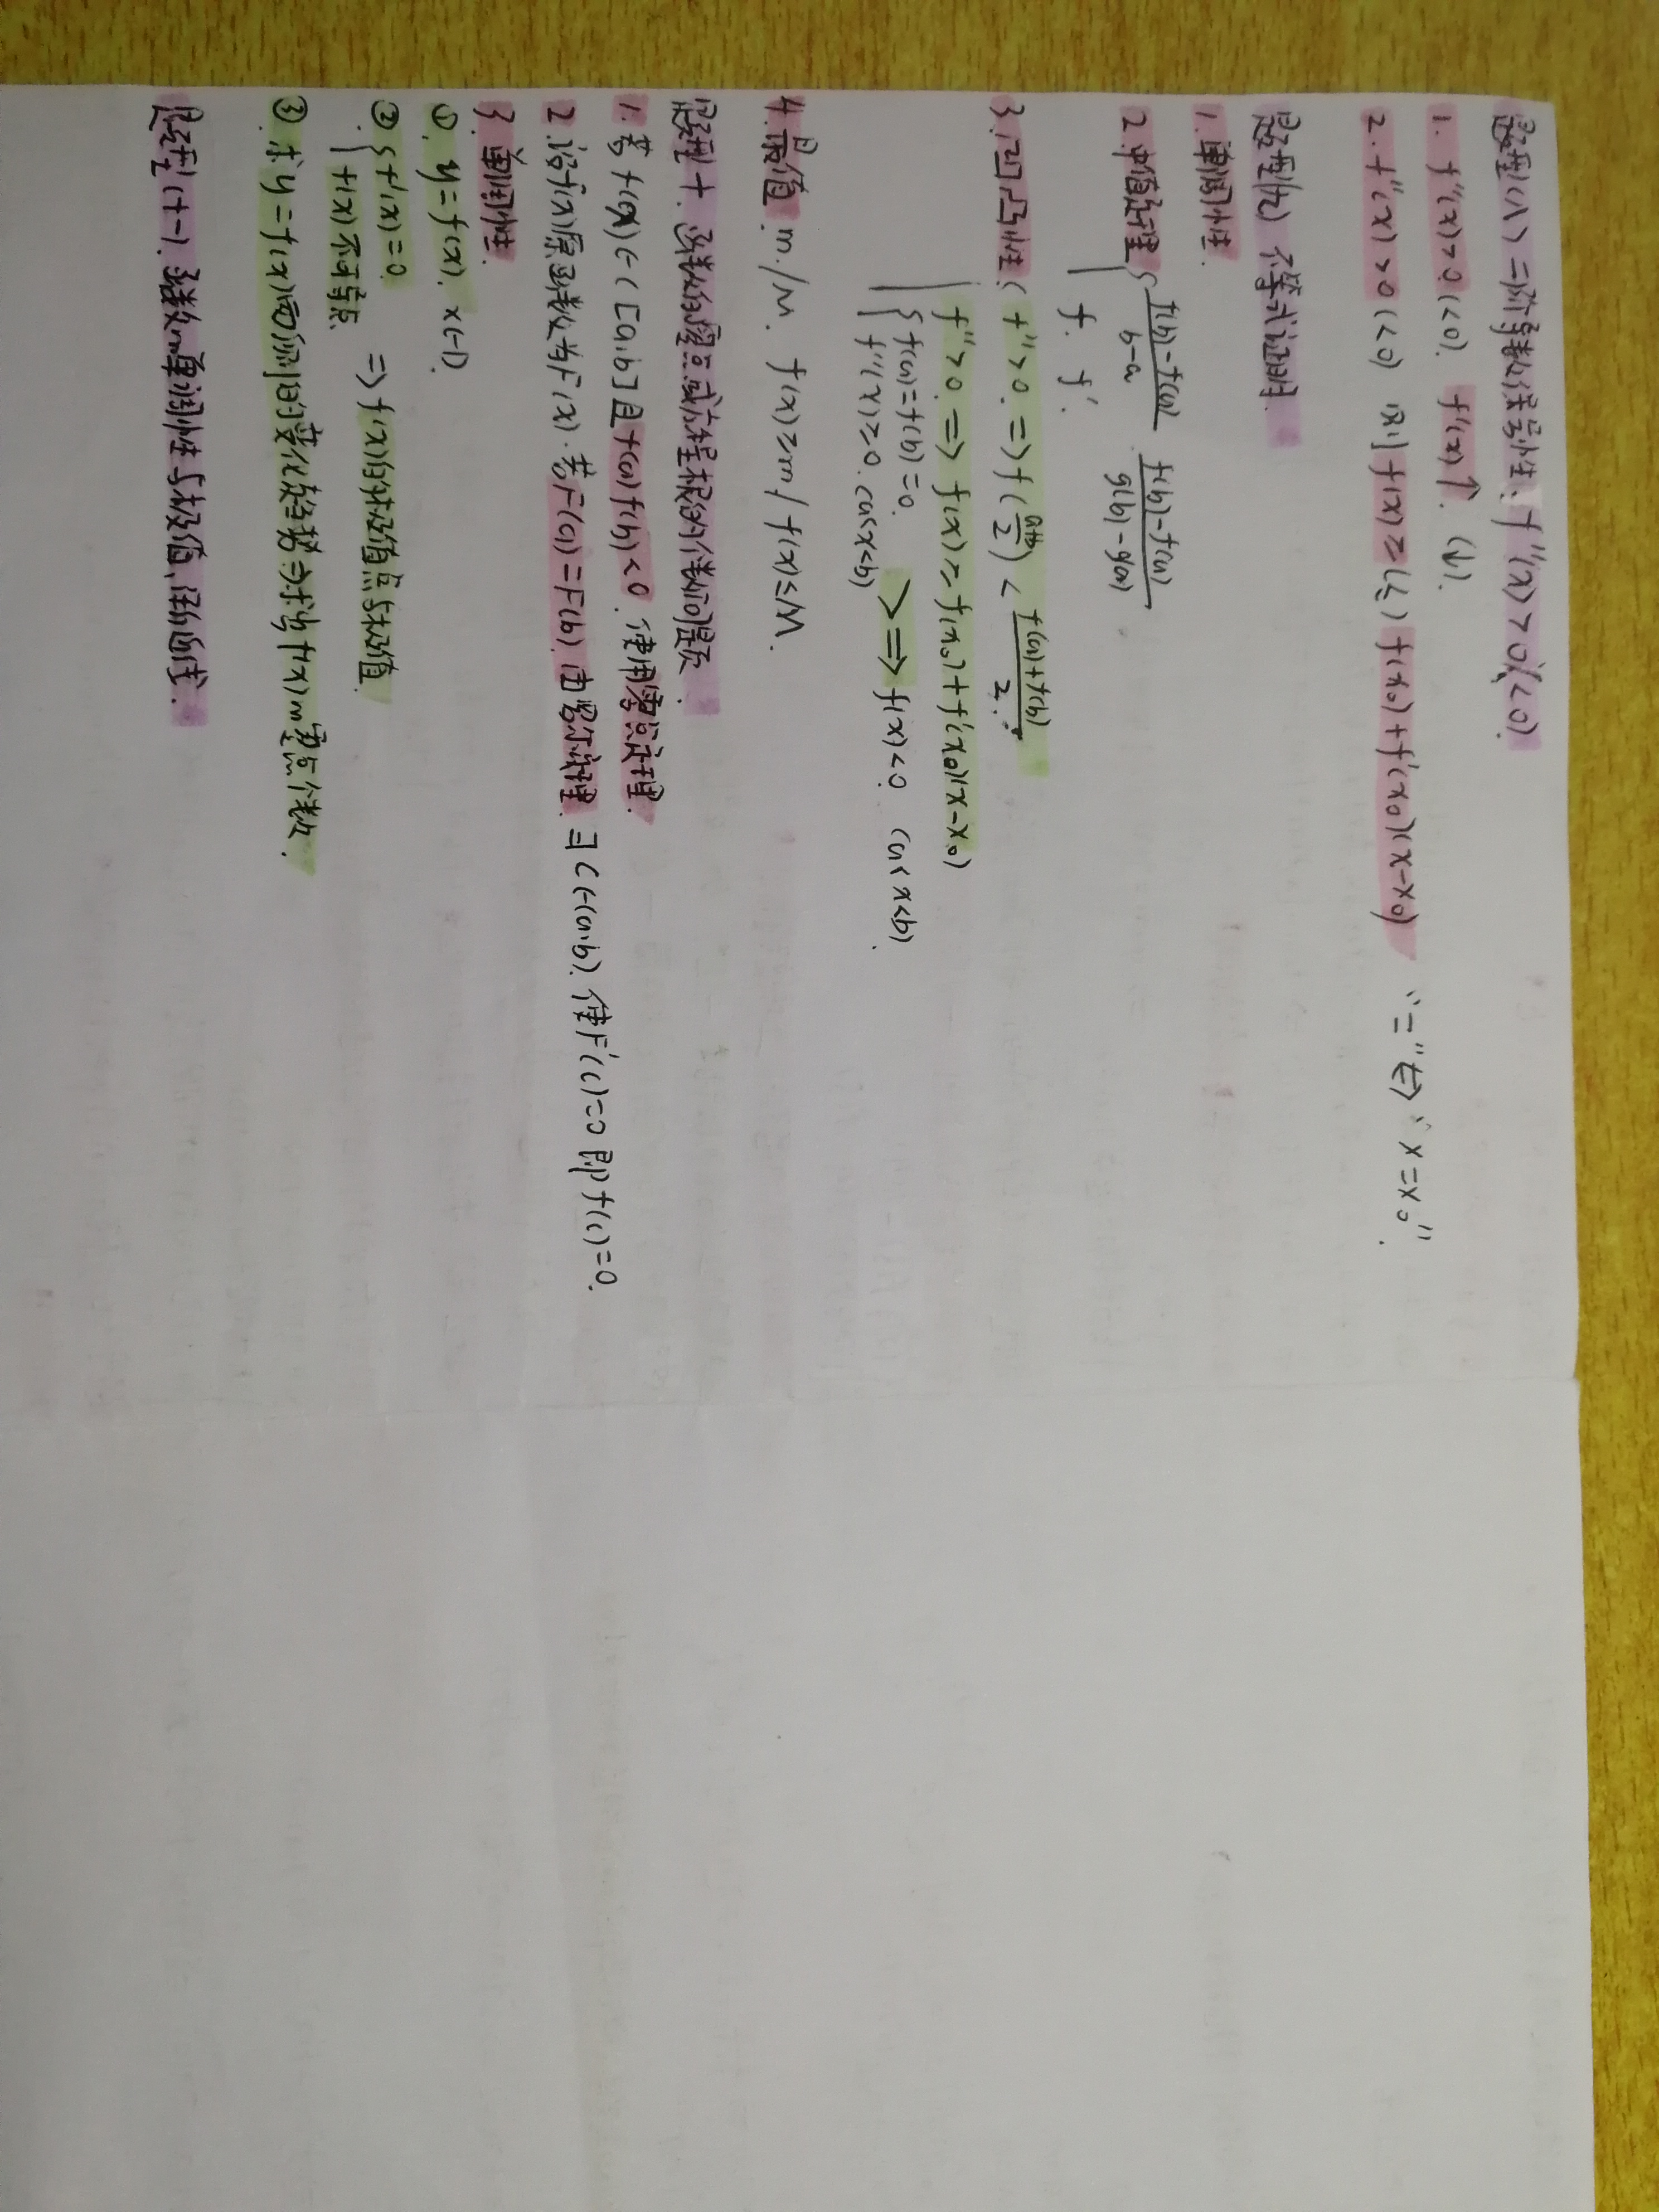 题型(八) 二阶导数保号性: f''(x)>0(<0).
1. f''(x)>0(<0). f'(x)↑. (↓).
2. f''(x)>0(<0) 则 f(x)≥(≤) f(x₀)+f'(x₀)(x-x₀) “=”⇔“x=x₀”.
题型(九) 不等式证明.
1. 单调性.
2. 中值定理 { (f(b)-f(a))/(b-a) (f(b)-f(a))/(g(b)-g(a))
f. f'.
3. 凹凸性 { f''>0 ⇒ f((a+b)/2) < (f(a)+f(b))/2.
f''>0 ⇒ f(x)≥f(x₀)+f'(x₀)(x-x₀)
{ f(a)=f(b)=0.
f''(x)≥0 (a<x<b) > ⇒ f(x)<0 (a<x<b).
4. 最值 m/M. f(x)≥m / f(x)≤M.
题型十. 函数的零点或方程根的个数问题.
1. 若 f(x)∈C[a,b] 且 f(a)f(b)<0. 使用零点定理.
2. 设f(x)原函数为F(x). 若F(a)=F(b). 由罗尔定理. ∃c∈(a,b). 使F'(c)=0 即f(c)=0.
3. 单调性.
①. y=f(x). x∈D.
②. { f'(x)=0.
f(x)不可导点. ⇒ f(x)的极值点与极值
③. 求y=f(x)两侧的变化趋势⇒求出f(x)的零点个数.
题型(十一). 函数的单调性与极值、注意.